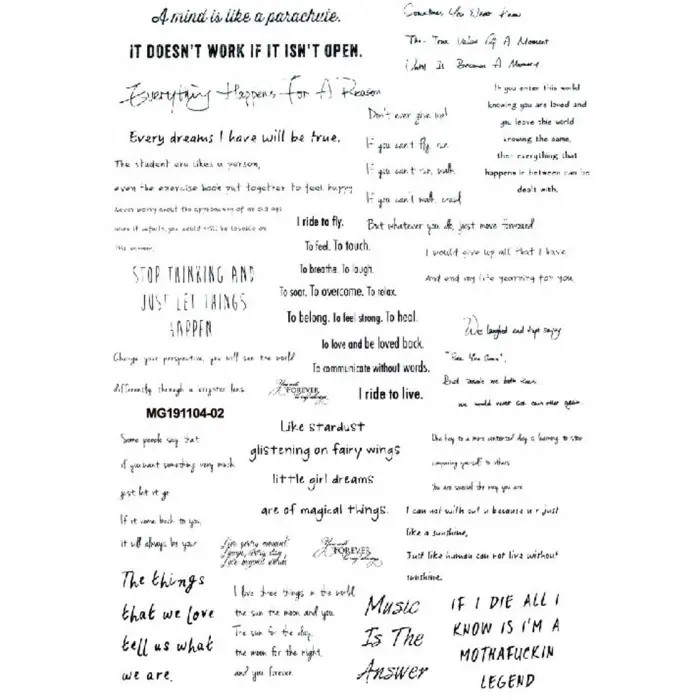 A mind is like a parachute.
IT DOESN'T WORK IF IT ISN'T OPEN.
Sometimes You Never Know
The True Value Of A Moment
Until It Becomes A Memory
Everything Happens For A Reason
If you enter this world
knowing you are loved and
you leave this world
knowing the same,
then everything that
happens in between can be
dealt with.
Every dreams I have will be true.
Don't ever give up!
If you can't fly, run
If you can't run, walk
If you can't walk, crawl
But whatever you do, just move forward.
The student era likes a person,
even the exercise book put together to feel happy
Never worry about the
I ride to fly.
To feel. To touch.
To breathe. To laugh.
To soar. To overcome. To relax.
To belong. To feel strong. To heal.
To love and be loved back.
To communicate without words.
I ride to live.
I would give up all that I have
And end my life yearning for you
STOP THINKING AND
JUST LET THINGS
HAPPEN
We laughed and kept saying
"See You Soon",
But inside we both knew
we would never see each other again.
Change your perspective, you will see the world
differently through a crypter lens.
You will
FOREVER
be my always
MG191104-02
Like stardust
glistening on fairy wings
little girl dreams
are of magical things.
Some people say that
if you want something very much
just let it go
If it come back to you,
it will always be your
The key to a more contented day is learning to stop
comparing yourself to others
You are special the way you are
I can not with out u because u r just
like a sunshine,
Just like human can not live without
sunshine.
Live every moment
Laugh every day
Love beyond words
You will
FOREVER
be my always
The things
that we love
tell us what
we are.
I love three things in the world
the sun the moon and you.
The sun for the day,
the moon for the night,
and you forever.
Music
Is The
Answer
IF I DIE ALL I
KNOW IS I'M A
MOTHAFUCKIN
LEGEND